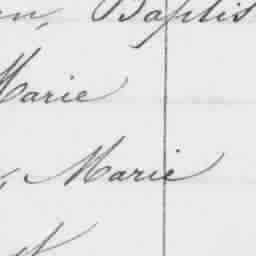 Baptis
Marie
, Marie